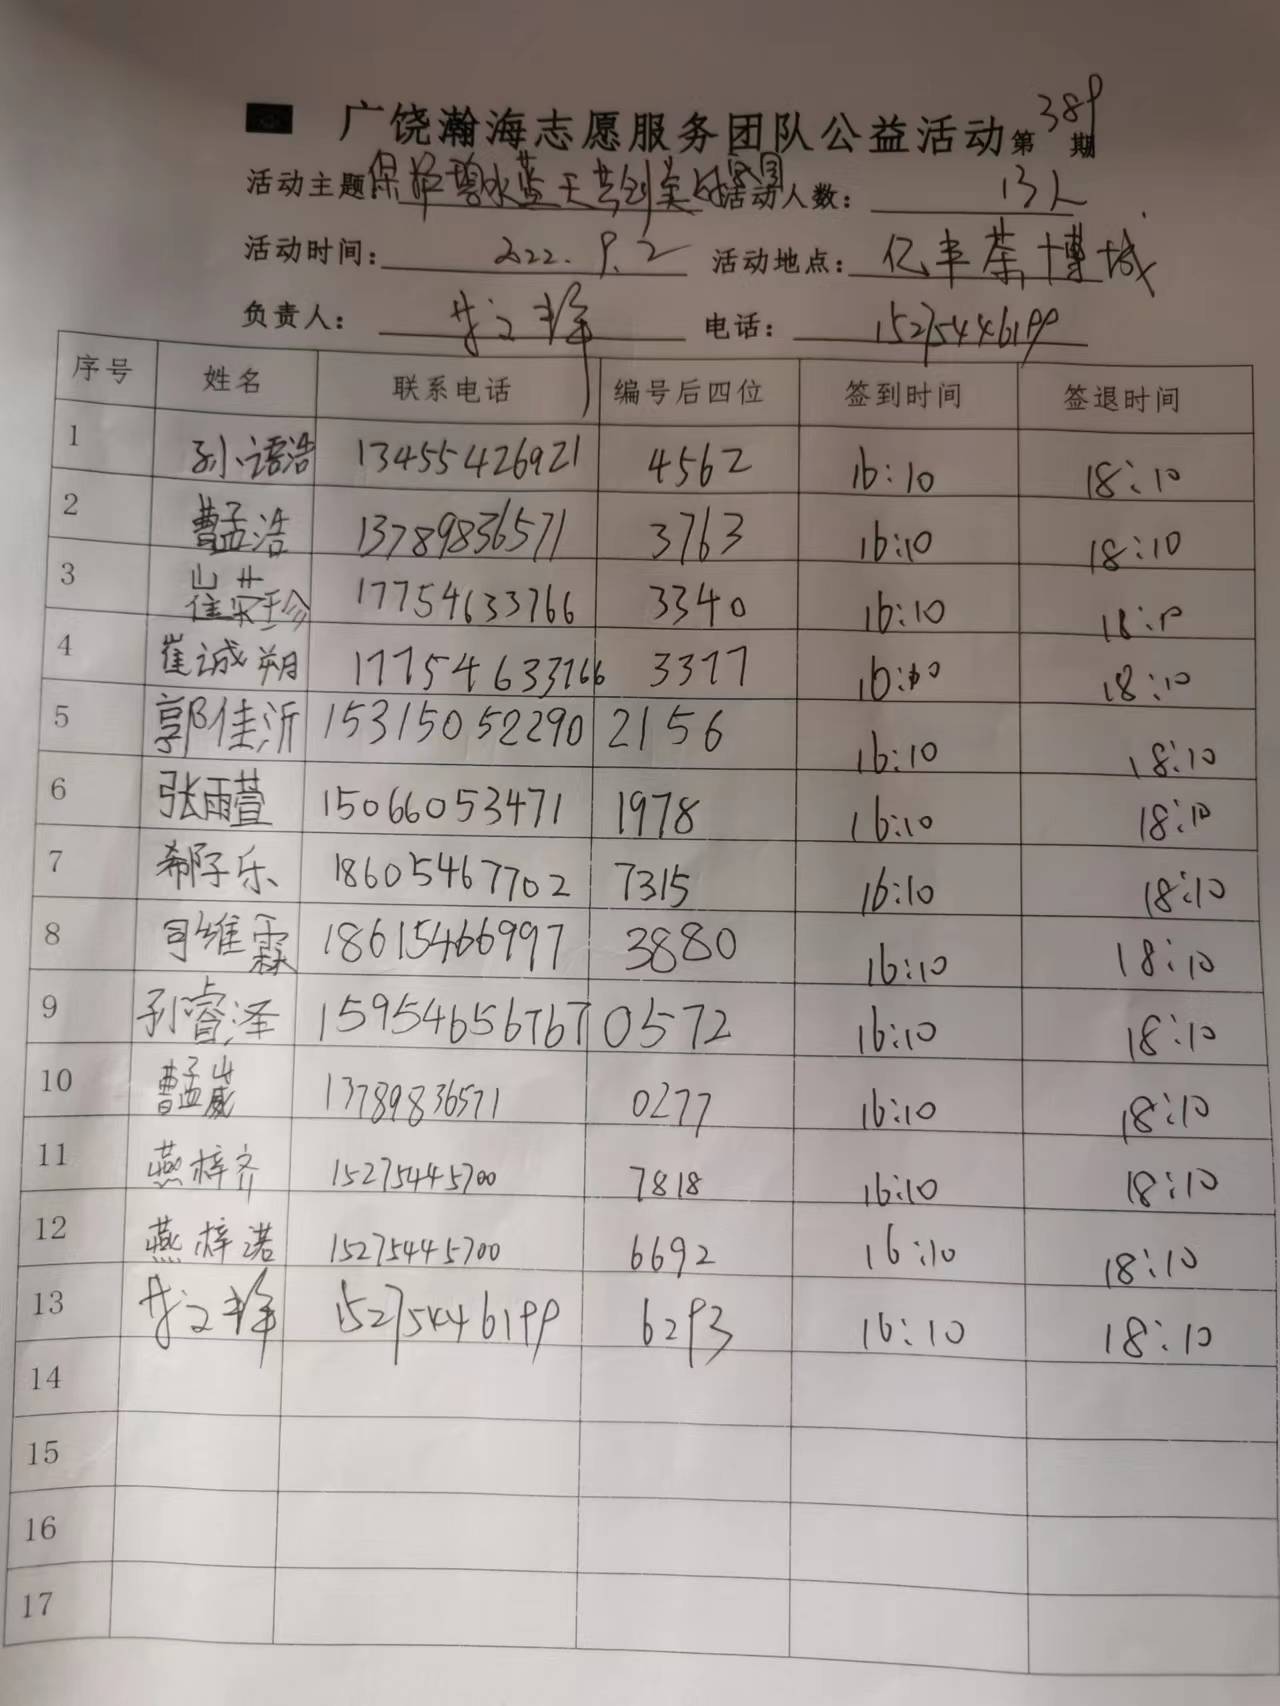 广饶瀚海志愿服务团队公益活动第389期
活动主题保护碧水蓝天共创美好家园 活动人数：13人
活动时间：2022.9.2 活动地点：亿丰茶博城
负责人： 电话：15275446199
序号 姓名 联系电话 编号后四位 签到时间 签退时间
1 孙语浩 13455426921 4562 16:10 18:10
2 曹孟浩 13789836571 3763 16:10 18:10
3 崔荣珍 17754633766 3340 16:10 18:10
4 崔诚朔 17754633766 3377 16:10 18:10
5 郭佳沂 15315052290 2156 16:10 18:10
6 张雨萱 15066053471 1978 16:10 18:10
7 郗子乐 18605467702 7315 16:10 18:10
8 司维霖 18615466997 3880 16:10 18:10
9 孙睿泽 15954656767 0572 16:10 18:10
10 曹孟崴 13789836571 0277 16:10 18:10
11 燕梓齐 15275445700 7818 16:10 18:10
12 燕梓诺 15275445700 6692 16:10 18:10
13 15275446199 6293 16:10 18:10
14
15
16
17